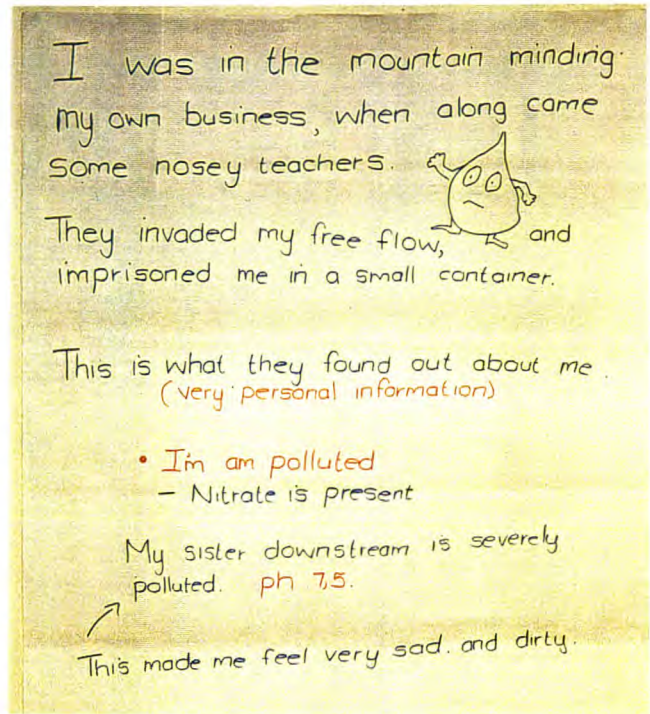 I was in the mountain minding
my own business, when along came
some nosey teachers.
They invaded my free flow, and
imprisoned me in a small container.
This is what they found out about me.
(very personal information)
• I'm am polluted
– Nitrate is present
My sister downstream is severely
polluted. ph 7,5.
This made me feel very sad. and dirty.